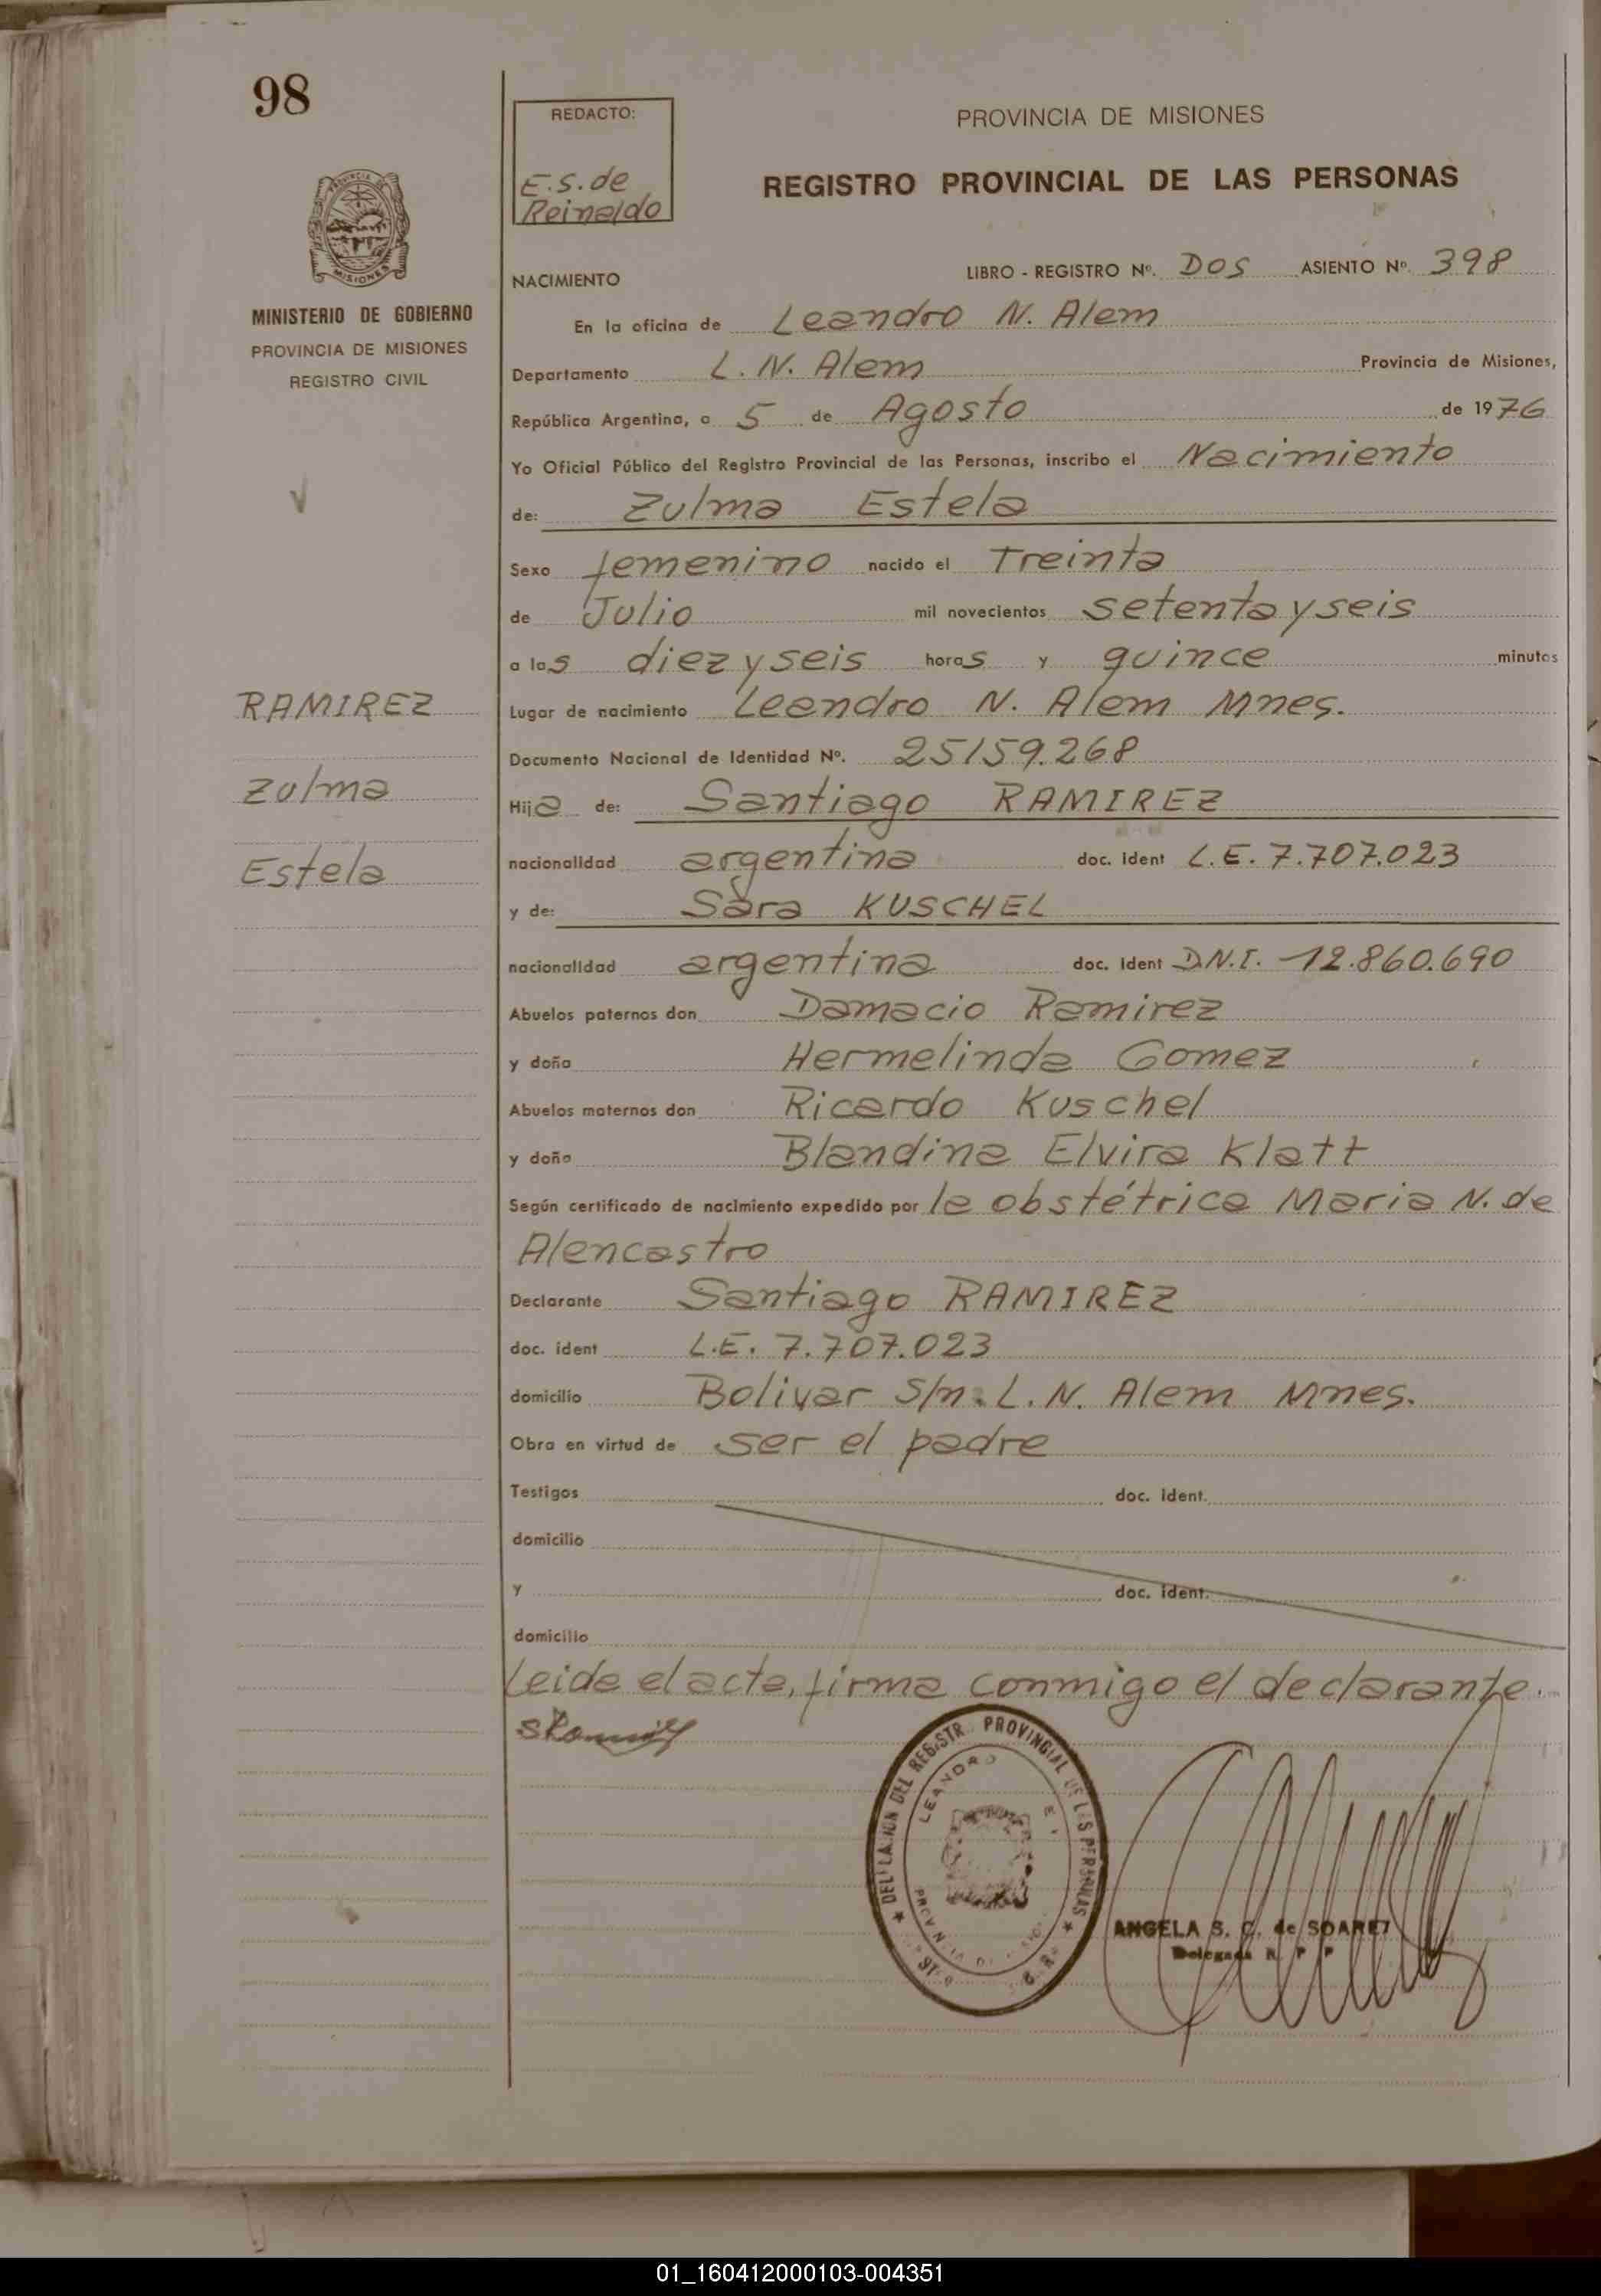 98
REDACTO:
E.S. de
Reinaldo
PROVINCIA DE MISIONES
REGISTRO PROVINCIAL DE LAS PERSONAS
PROVINCIA DE
MISIONES
MINISTERIO DE GOBIERNO
PROVINCIA DE MISIONES
REGISTRO CIVIL
NACIMIENTO
LIBRO - REGISTRO Nº. DOS ASIENTO Nº. 398
En la oficina de Leandro N. Alem
Departamento L. N. Alem Provincia de Misiones,
República Argentina, a 5 de Agosto de 1976
Yo Oficial Público del Registro Provincial de las Personas, inscribo el Nacimiento
de: Zulma Estela
Sexo femenino nacido el Treinta
de Julio mil novecientos setenta y seis
a las diez y seis horas y quince minutos
RAMIREZ
Zulma
Estela
Lugar de nacimiento Leandro N. Alem Mnes.
Documento Nacional de Identidad Nº. 25159.268
Hija de: Santiago RAMIREZ
nacionalidad argentina doc. ident L.E. 7.707.023
y de: Sara KUSCHEL
nacionalidad argentina doc. ident D.N.I. 12.860.690
Abuelos paternos don Damacio Ramirez
y doña Hermelinda Gomez
Abuelos maternos don Ricardo Kuschel
y doña Blandina Elvira Klatt
Según certificado de nacimiento expedido por la obstétrica Maria N. de
Alencastro
Declarante Santiago RAMIREZ
doc. ident L.E. 7.707.023
domicilio Bolivar S/n. L. N. Alem Mnes.
Obra en virtud de ser el padre
Testigos doc. ident.
domicilio
y doc. ident.
domicilio
Leida el acta, firma conmigo el declarante.
SRamirez
DEL REGISTR. PROVINCIAL DE LAS PERSONAS
LEANDRO
ANGELA S. C. de SOAREZ
Delegada R. P. P.
01_160412000103-004351